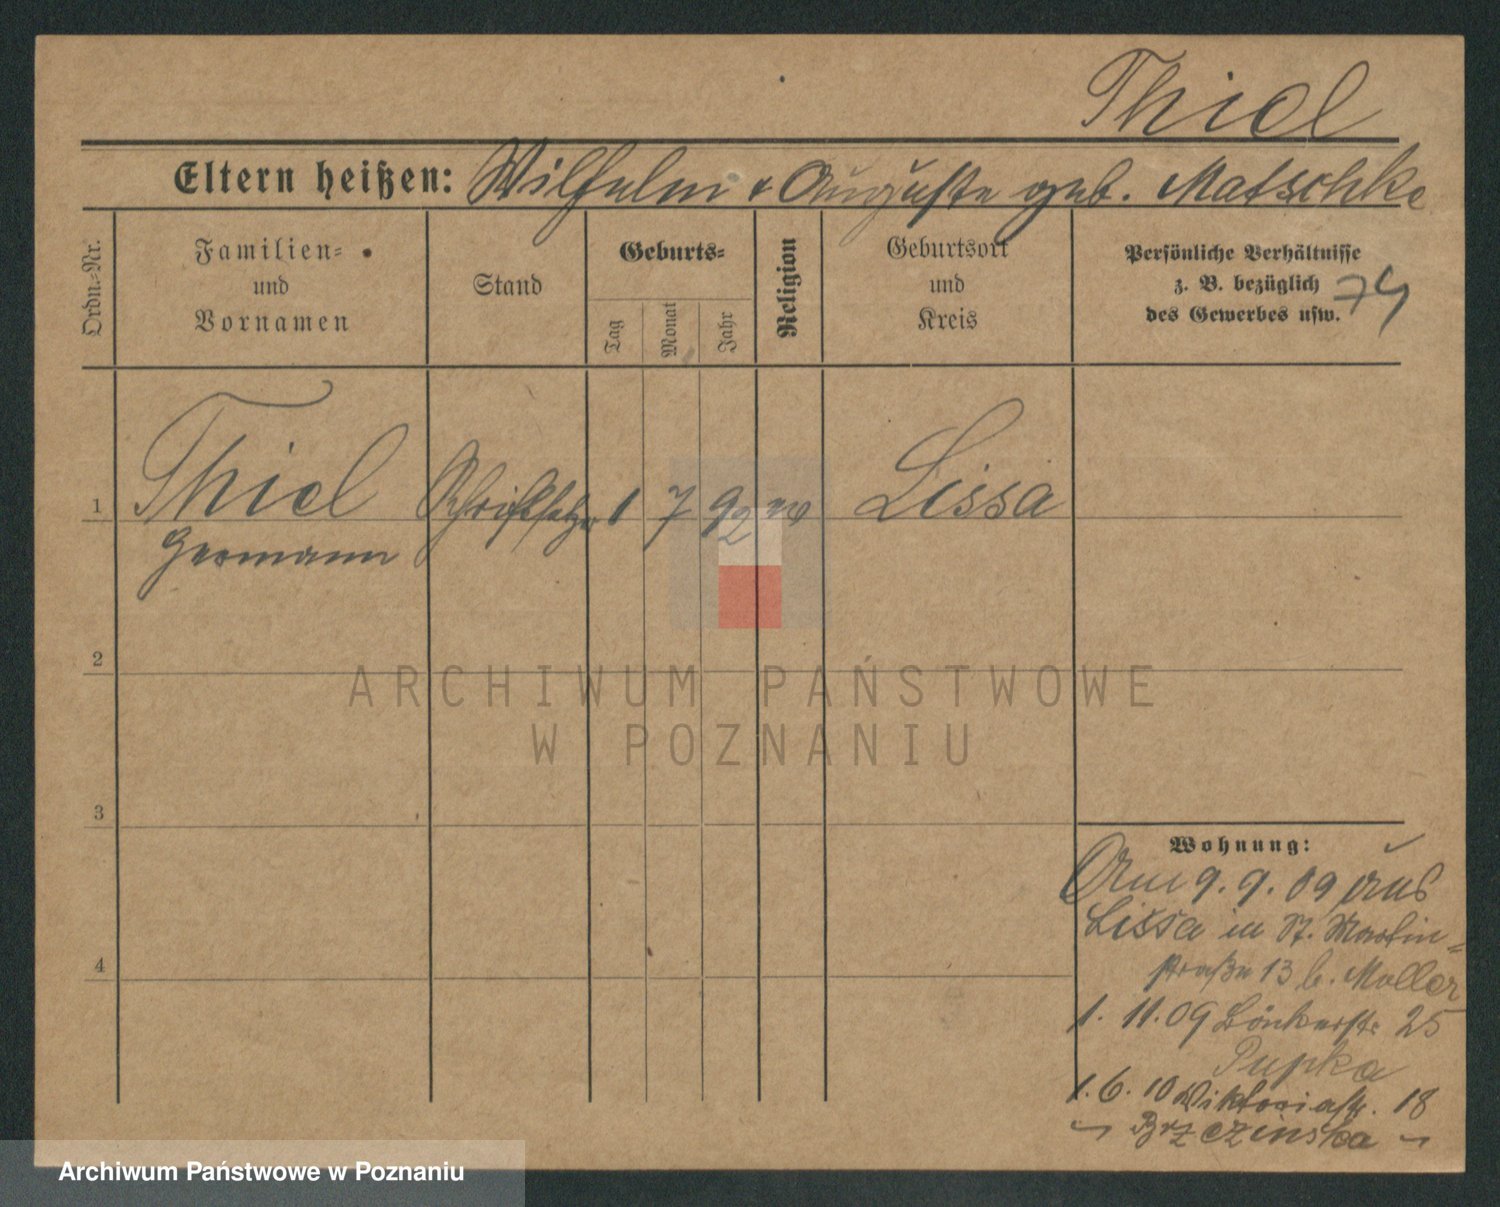 Thiel
Eltern heißen: Wilhelm & Auguste geb. Matschke
Ordn.-Nr.
Familien-
und
Vornamen
Stand
Geburts-
Tag
Monat
Jahr
Religion
Geburtsort
und
Kreis
Persönliche Verhältnisse
z. B. bezüglich
des Gewerbes usw.
74
1 Thiel Schriftsetzer 1 7 92 Lissa
Hermann
2
3
4
Wohnung:
Am 9. 9. 09 aus
Lissa in St. Martin-
straße 13 b. Moller
1. 11. 09 Bönkerstr. 25
Pupka
1. 6. 10 Viktoriastr. 18
Brzezinska
ARCHIWUM PAŃSTWOWE
W POZNANIU
Archiwum Państwowe w Poznaniu